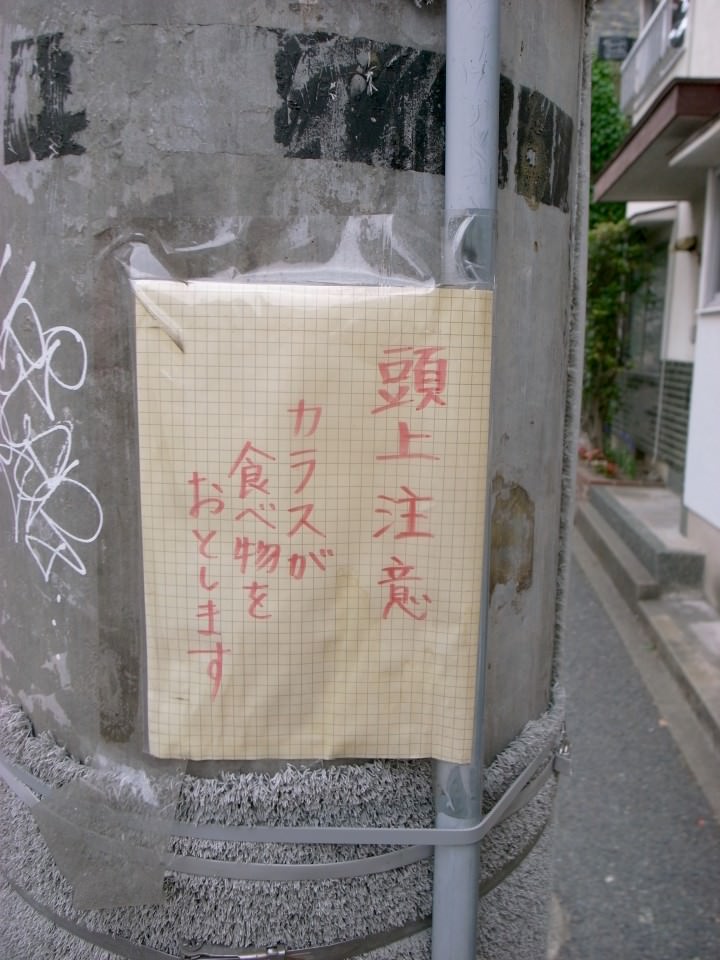 頭上注意
カラスが
食べ物を
おとします